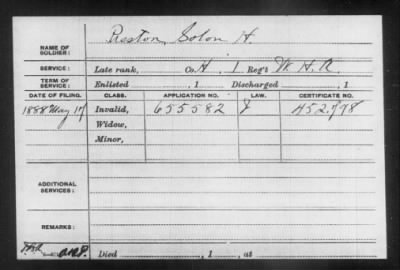 NAME OF SOLDIER: Reston, Solon H.
SERVICE: Late rank, Co. H, 1 Reg't H. A.
TERM OF SERVICE: Enlisted , 1 Discharged , 1
DATE OF FILING. CLASS. APPLICATION NO. LAW. CERTIFICATE NO.
1888 May 17 Invalid, 655582 452.798
Widow,
Minor,
ADDITIONAL SERVICES:
REMARKS:
Died , 1 , at